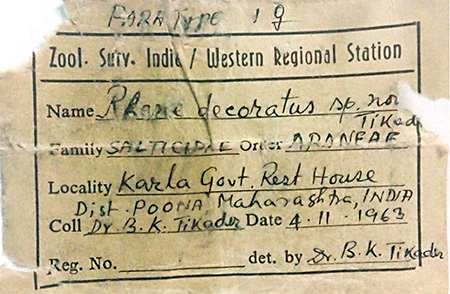 PARATYPE 1 ♀
Zool. Surv. India / Western Regional Station
Name Rhene decoratus sp. nov
Tikader
Family SALTICIDAE Order ARANEAE
Locality Karla Govt. Rest House
Dist. POONA, Maharashtra, INDIA
Coll Dr. B. K. Tikader Date 4.11.1963
Reg. No. det. by Dr. B. K. Tikader